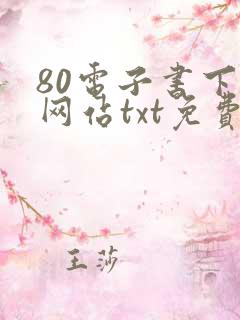 80电子书下
网佔txt免费
王莎